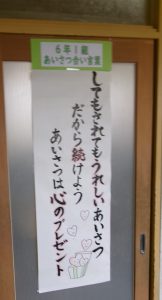 6年1組
あいさつ合い言葉
してもされてもうれしいあいさつ
だから続けよう
あいさつは心のプレゼント